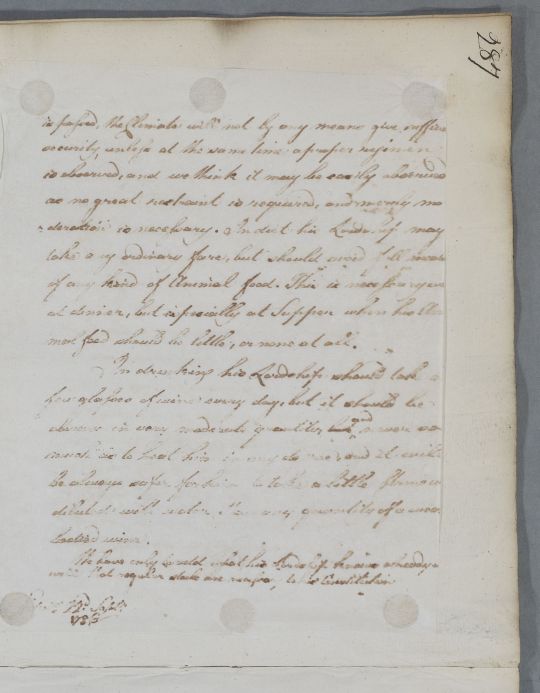 287
is passed, the Climate will not by any means give suffice
security, unless at the same time a proper regimen
is observed, and we think it may be easily observed
as no great restraint is required, and merely mo
deration is necessary. In diet his Lordship may
take any ordinary fare, but should avoid full meals
of any kind of Animal food. This is necessary even
at dinner, but especially at Supper when his
food should be little, or none at all.
In drinking his Lordship should take a
few glasses of wine every day, but it should be
always in very moderate quantity, and never so
much as to heat him in any degree, and it will
be always safer for him to take a little
diluted with water than any quantity of a
wine.
We have only to add what his Lordship knows already
that regular are to his Constitution
Septr
178